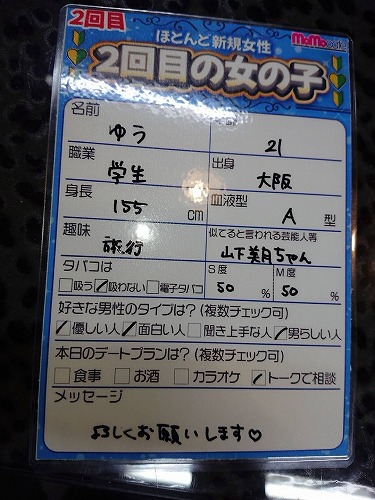 2回目
MoMo
ほとんど新規女性
2回目の女の子
名前
ゆう
年齢
21
職業
学生
出身
大阪
身長
155 cm
血液型
A 型
趣味
旅行
似てると言われる芸能人等
山下美月ちゃん
タバコは
□吸う ☑吸わない □電子タバコ
S度
50 %
M度
50 %
好きな男性のタイプは?(複数チェック可)
☑優しい人 ☑面白い人 □聞き上手な人 ☑男らしい人
本日のデートプランは?(複数チェック可)
□食事 □お酒 □カラオケ ☑トークで相談
メッセージ
よろしくお願いします♡